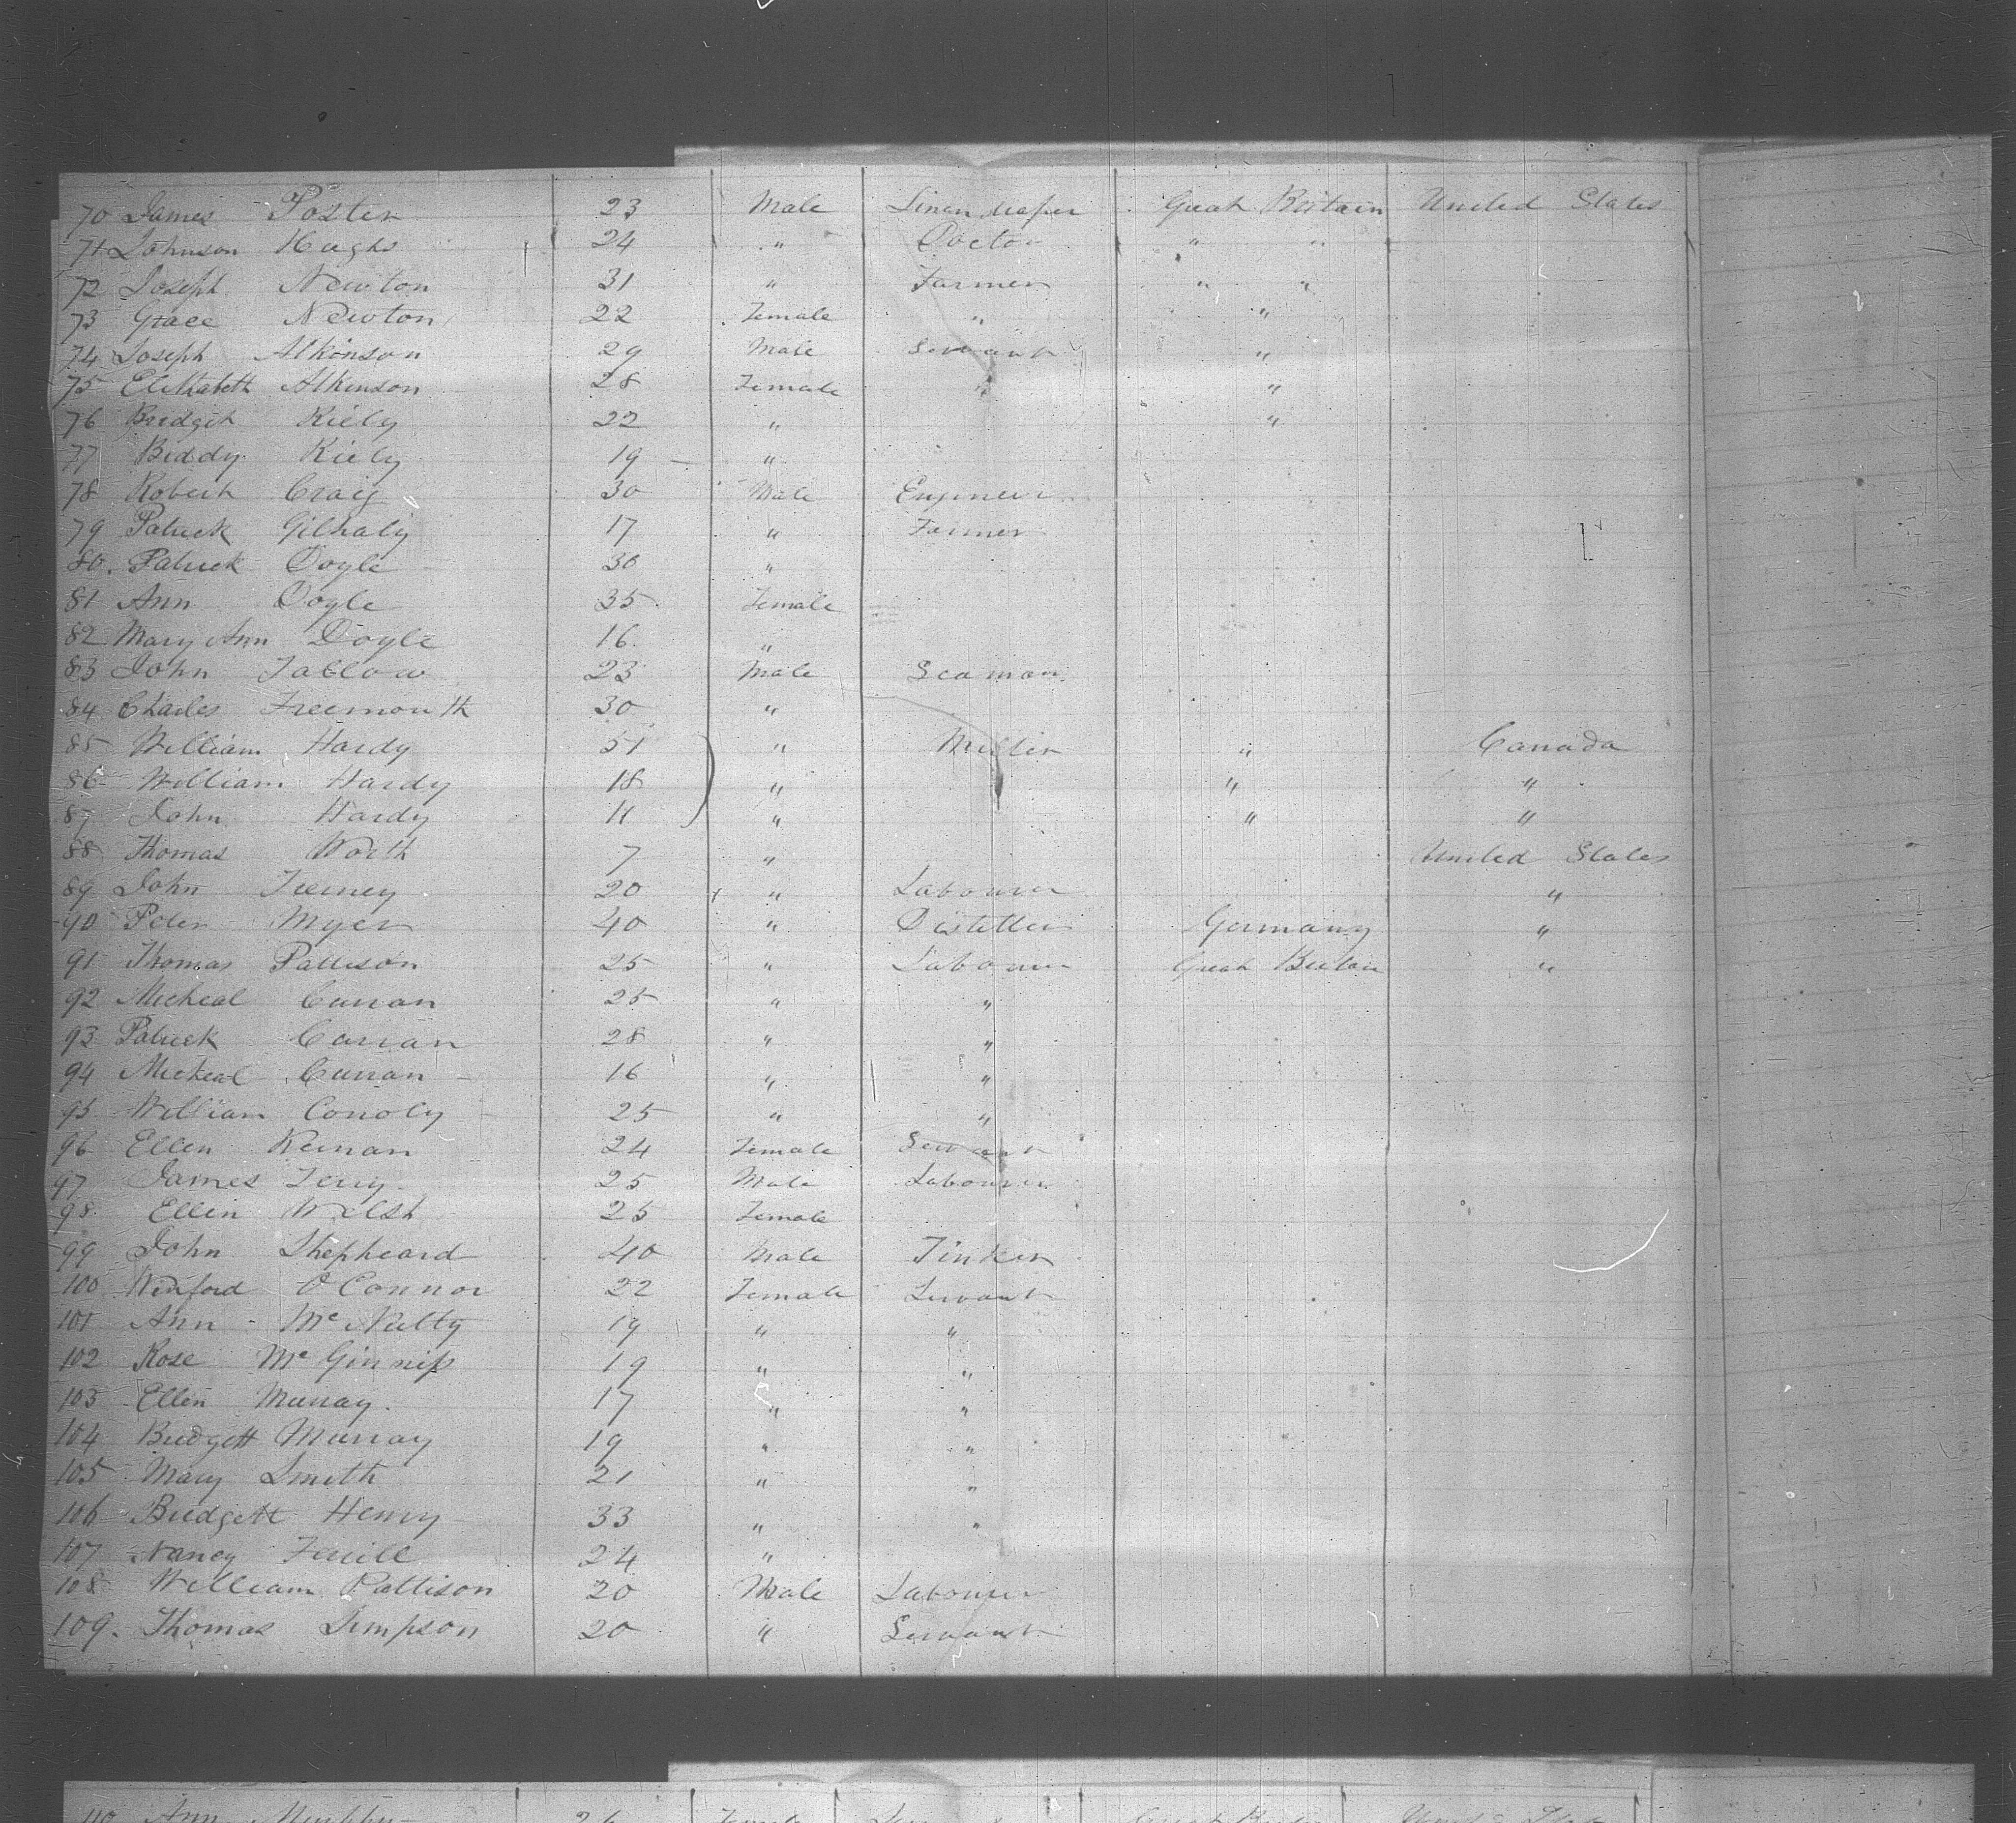 70 James Foster 23 Male Linen draper Great Britain United States
71 Johnson Hughs 24 " Doctor " "
72 Joseph Newton 31 " Farmer " "
73 Grace Newton 22 Female " "
74 Joseph Atkinson 29 Male Servant "
75 Elithabeth Atkinson 28 Female " "
76 Bridget Kiely 22 " "
77 Biddy Kiely 19 "
78 Robert Craig 30 Male Engineer
79 Patrick Gilhaly 17 " Farmer
80 Patrick Doyle 30 "
81 Ann Doyle 35 Female
82 Mary Ann Doyle 16 "
83 John Tablow 23 Male Seaman
84 Charles Freemouth 30 "
85 William Hardy 51 " Miller " Canada
86 William Hardy 18 " " "
87 John Hardy 11 " " "
88 Thomas North 7 " United States
89 John Tierney 20 " Labourer "
90 Peter Myer 40 " Distiller Germany "
91 Thomas Pattison 25 " Labourer Great Britain "
92 Micheal Curran 25 " "
93 Patrick Curran 28 " "
94 Micheal Curran 16 " "
95 William Conoly 25 " "
96 Ellen Keenan 24 Female Servant
97 James Terry 25 Male Labourer
98 Ellin Welsh 25 Female
99 John Shepheard 40 Male Tinker
100 Winford O Connor 22 Female Servant
101 Ann McNulty 19 " "
102 Rose McGinniss 19 " "
103 Ellen Murray 17 " "
104 Bridgett Murray 19 " "
105 Mary Smith 21 " "
106 Bridgett Henry 33 " "
107 Nancy 24 "
108 William Pattison 20 Male Labourer
109. Thomas Simpson 20 " Servant
110 Ann Murphy